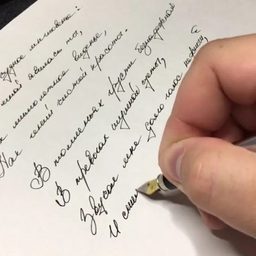 чудное мгновенье:
мной явилась ты,
Как мимолетное виденье,
Как гений чистой красоты.
В томленьях грусти безнадежной
В тревогах шумной суеты,
Звучал мне долго голос нежный
И сни